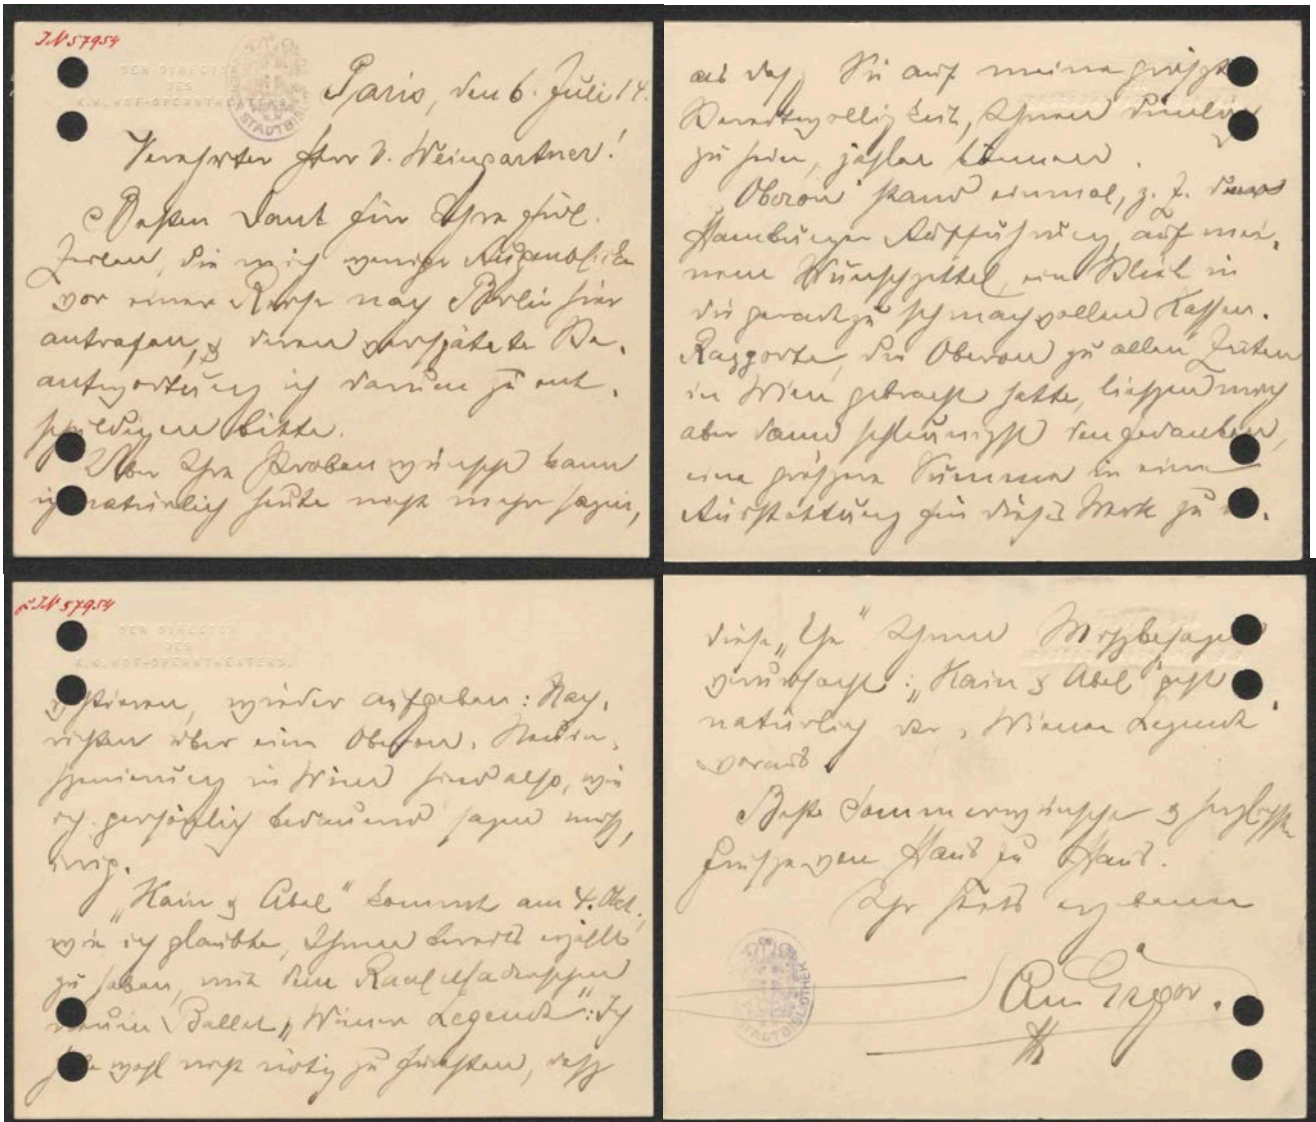 JN 57954
DER DIRECTOR
DES
K.K. HOF-OPERNTHEATERS
Paris, den 6. Juli 14.
Verehrter Herr v. Weingartner!
Besten Dank für Ihre gütl.
Zeilen, die mich wenige Augenblicke
vor einer Reise nach Berlin hier
antrafen, & deren verspätete Be-
antwortung ich darum zu ent-
schuldigen bitte.
Über Ihre Probenwünsche kann
ich natürlich heute nicht mehr sagen,
als dass Sie auf meine größte
Bereitwilligkeit, Ihnen
zu sein, zählen können.
Oberon stand einmal, z. Z.
Hamburger Aufführung, auf mei-
nem Wunschzettel, ein Blick in
die geradezu schmachvollen Kassen-
Rapporte, die Oberon zu allen Zeiten
in Wien gebracht hatte, liessen mich
aber dann schleunigst den Gedanken,
eine größere Summe in eine
Ausstattung für dieses Werk zu
2 JN 57954
DER DIRECTOR
DES
K.K. HOF-OPERNTHEATERS
wieder aufgeben: Nach-
richten über eine Oberon-Neuin-
szenierung in Wien sind also, wie
ich persönlich bedauernd sagen muss,
irrig.
„Kain & Abel" kommt am 4. Okt.,
wie ich glaubte, Ihnen bereits erzählt
zu haben, mit dem Raoul Maderschen
neuen Ballet „Wiener Legende": Ich
habe wohl nicht nötig zu fürchten, dass
diese „Ehe" Ihnen Missbehagen
verursacht: „Kain & Abel" geht
natürlich der „Wiener Legende
voraus.
Beste Sommerwünsche & herzlichste
Grüsse von Haus zu Haus.
Ihr stets ergebener
Gregor.
STADTBIBLIOTHEK